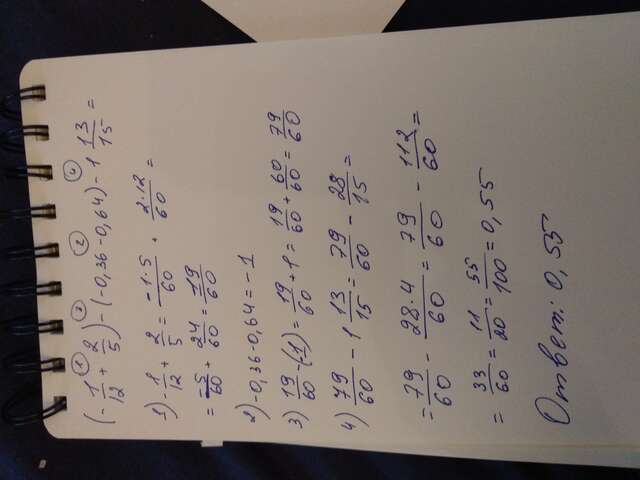 ① ③ ② ④
(-1/12 + 2/5) - (-0,36 - 0,64) - 1 13/15 =
1) -1/12 + 2/5 = -1·5/60 + 2·12/60 =
= -5/60 + 24/60 = 19/60
2) -0,36-0,64 = -1
3) 19/60 - (-1) = 19/60 + 1 = 19/60 + 60/60 = 79/60
4) 79/60 - 1 13/15 = 79/60 - 28/15 =
= 79/60 - 28·4/60 = 79/60 - 112/60 =
= 33/60 = 11/20 = 55/100 = 0,55
Ответ: 0,55